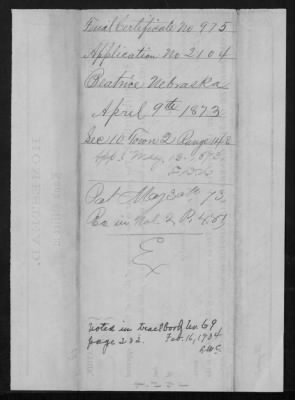 Final Certificate No 975
Application No 2104
Beatrice Nebraska
April 9th 1873
Sec 10 Town 2 Range 14 E
May 13 1873
Pat May 30th 73
Rec in Vol 2, P. 451
E
Noted in tract book Vol. 69
page 232. Feb. 16, 1934
HOMESTEAD.